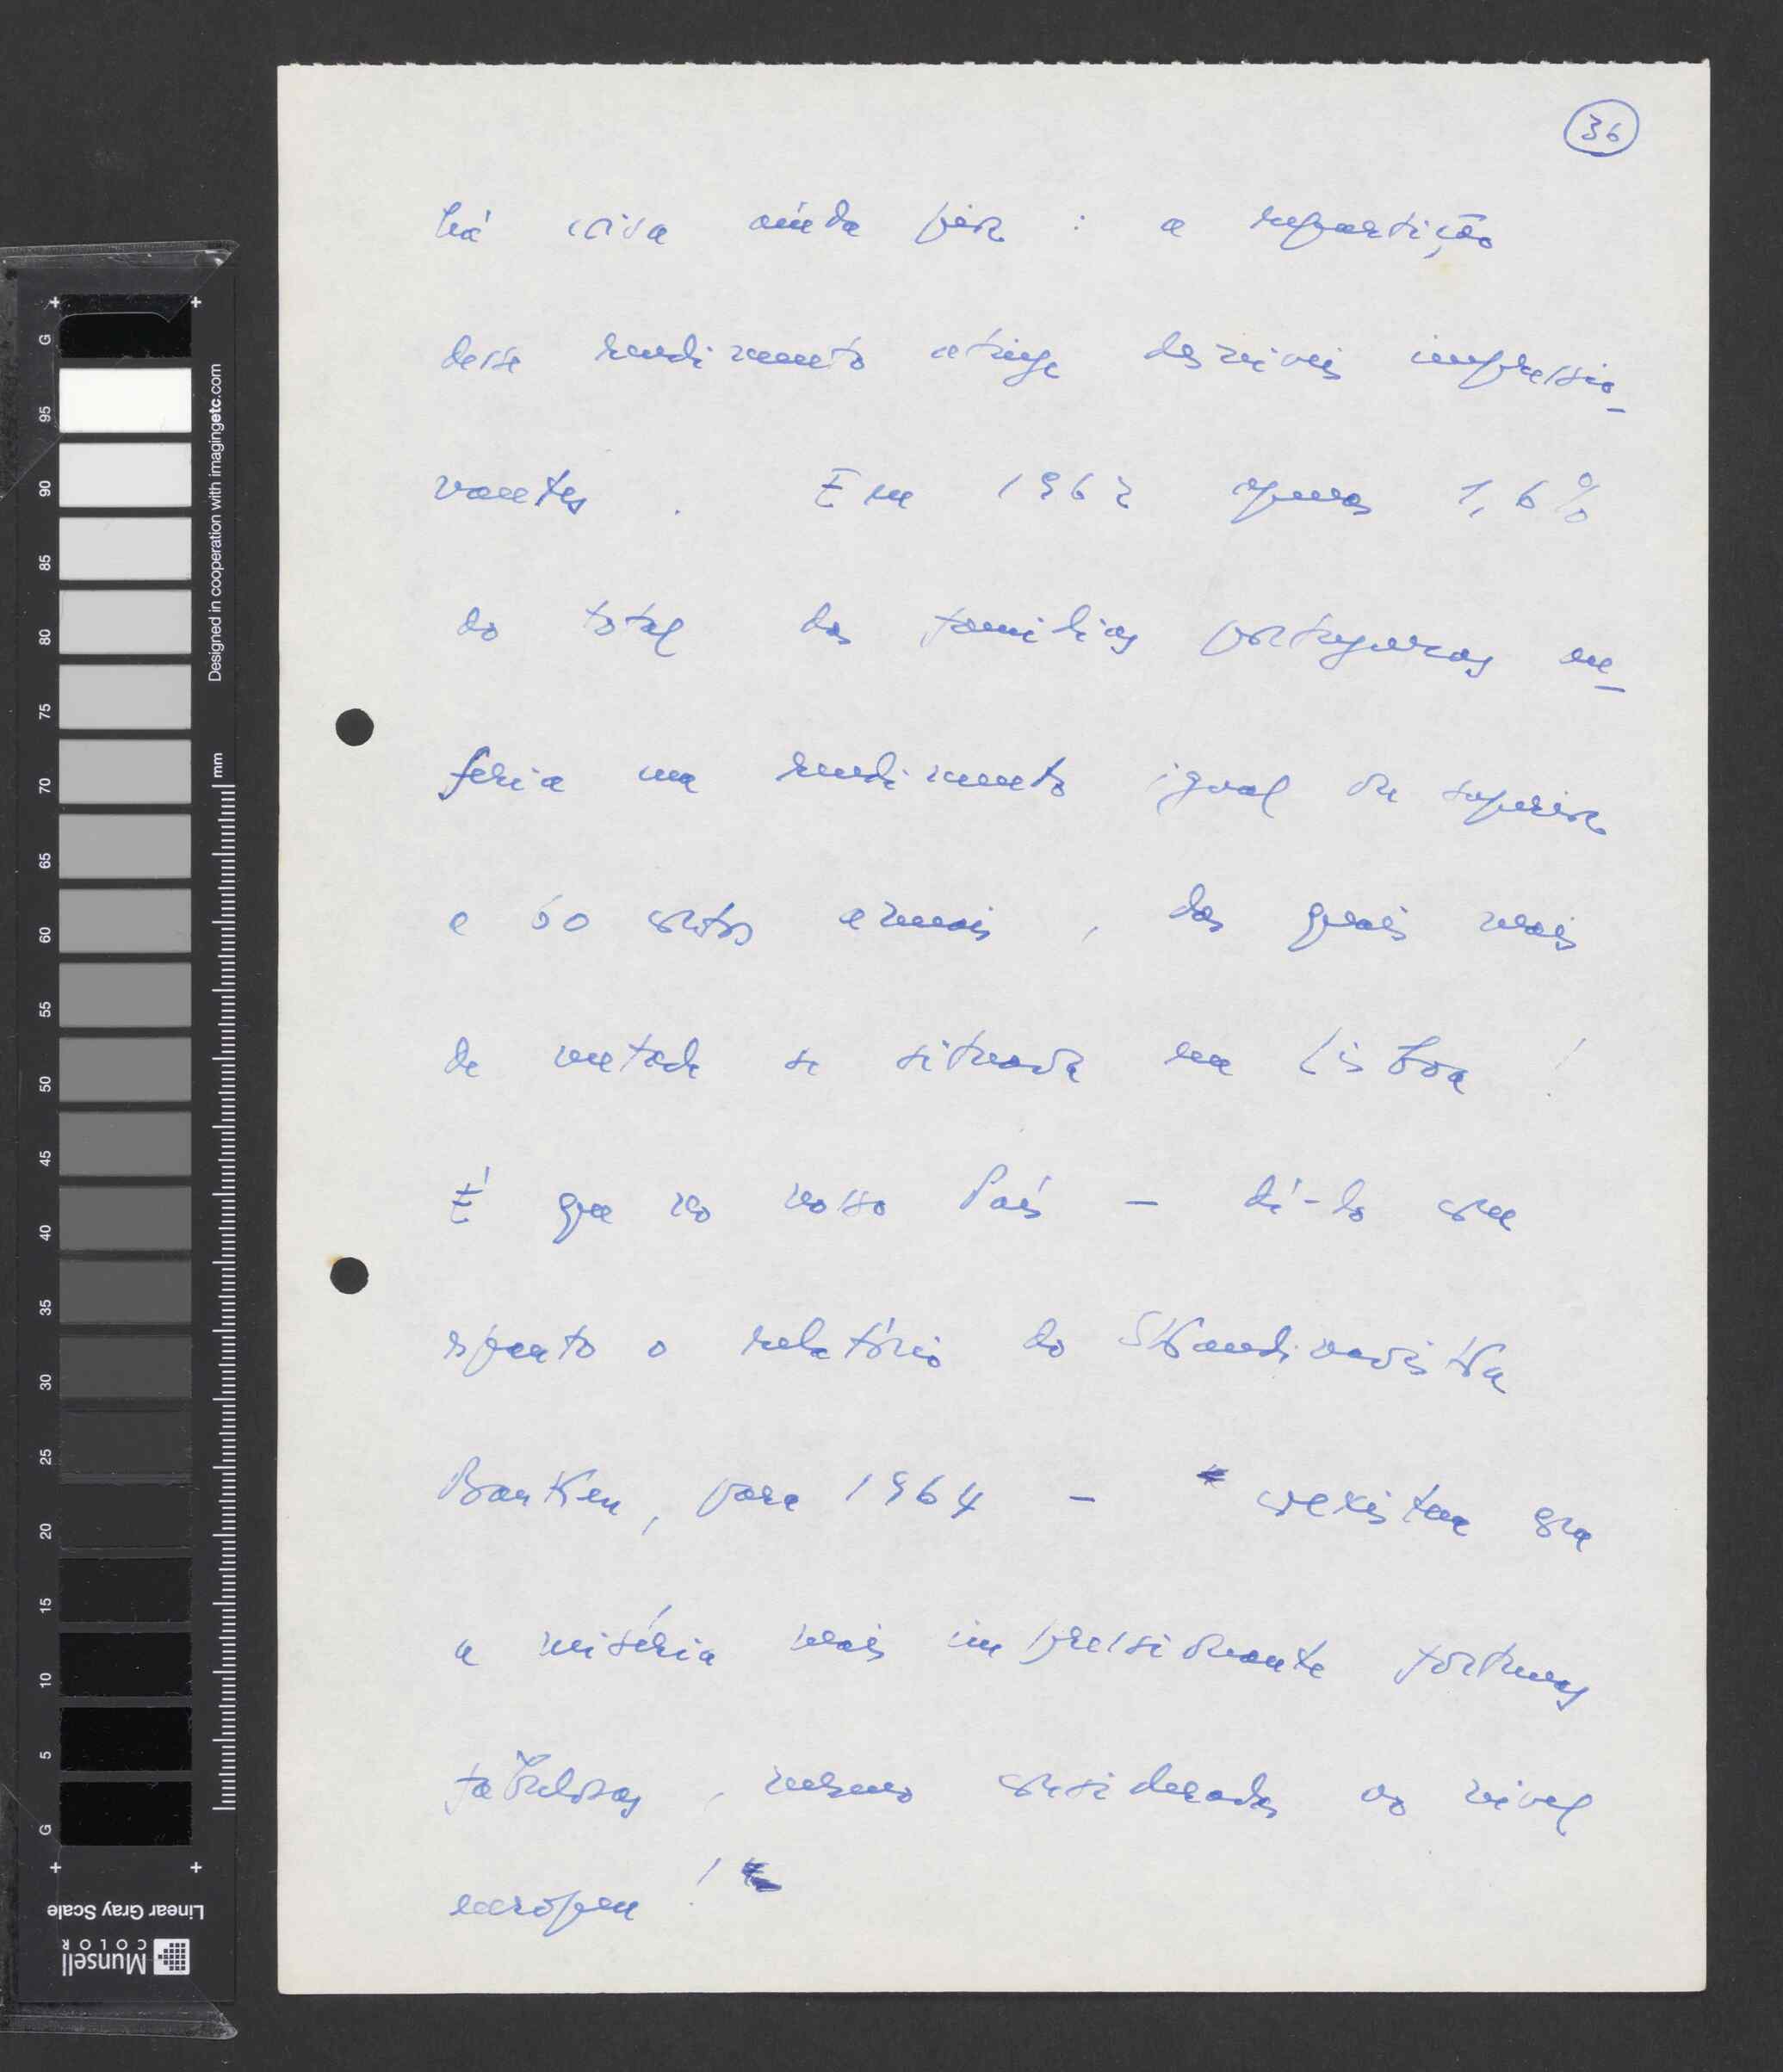 36
há coisa ainda pior : a repartição
desse rendimento atinge desníveis impressio-
nantes . Em 1962 apenas 1,6%
do total das famílias portuguesas au-
feria um rendimento igual ou superior
a 60 contos anuais , das quais mais
de metade se situava em Lisboa !
É que no nosso País — di-lo com
espanto o relatório do Skandinaviska
Banken, para 1964 — coexistem com
a miséria mais impressionante fortunas
fabulosas , mesmo consideradas ao nível
europeu !
G
95
90
85
80
75
70
65
60
55
50
45
40
35
30
25
20
15
10
5
G
mm
Designed in cooperation with imagingetc.com
Linear Gray Scale
Munsell
COLOR